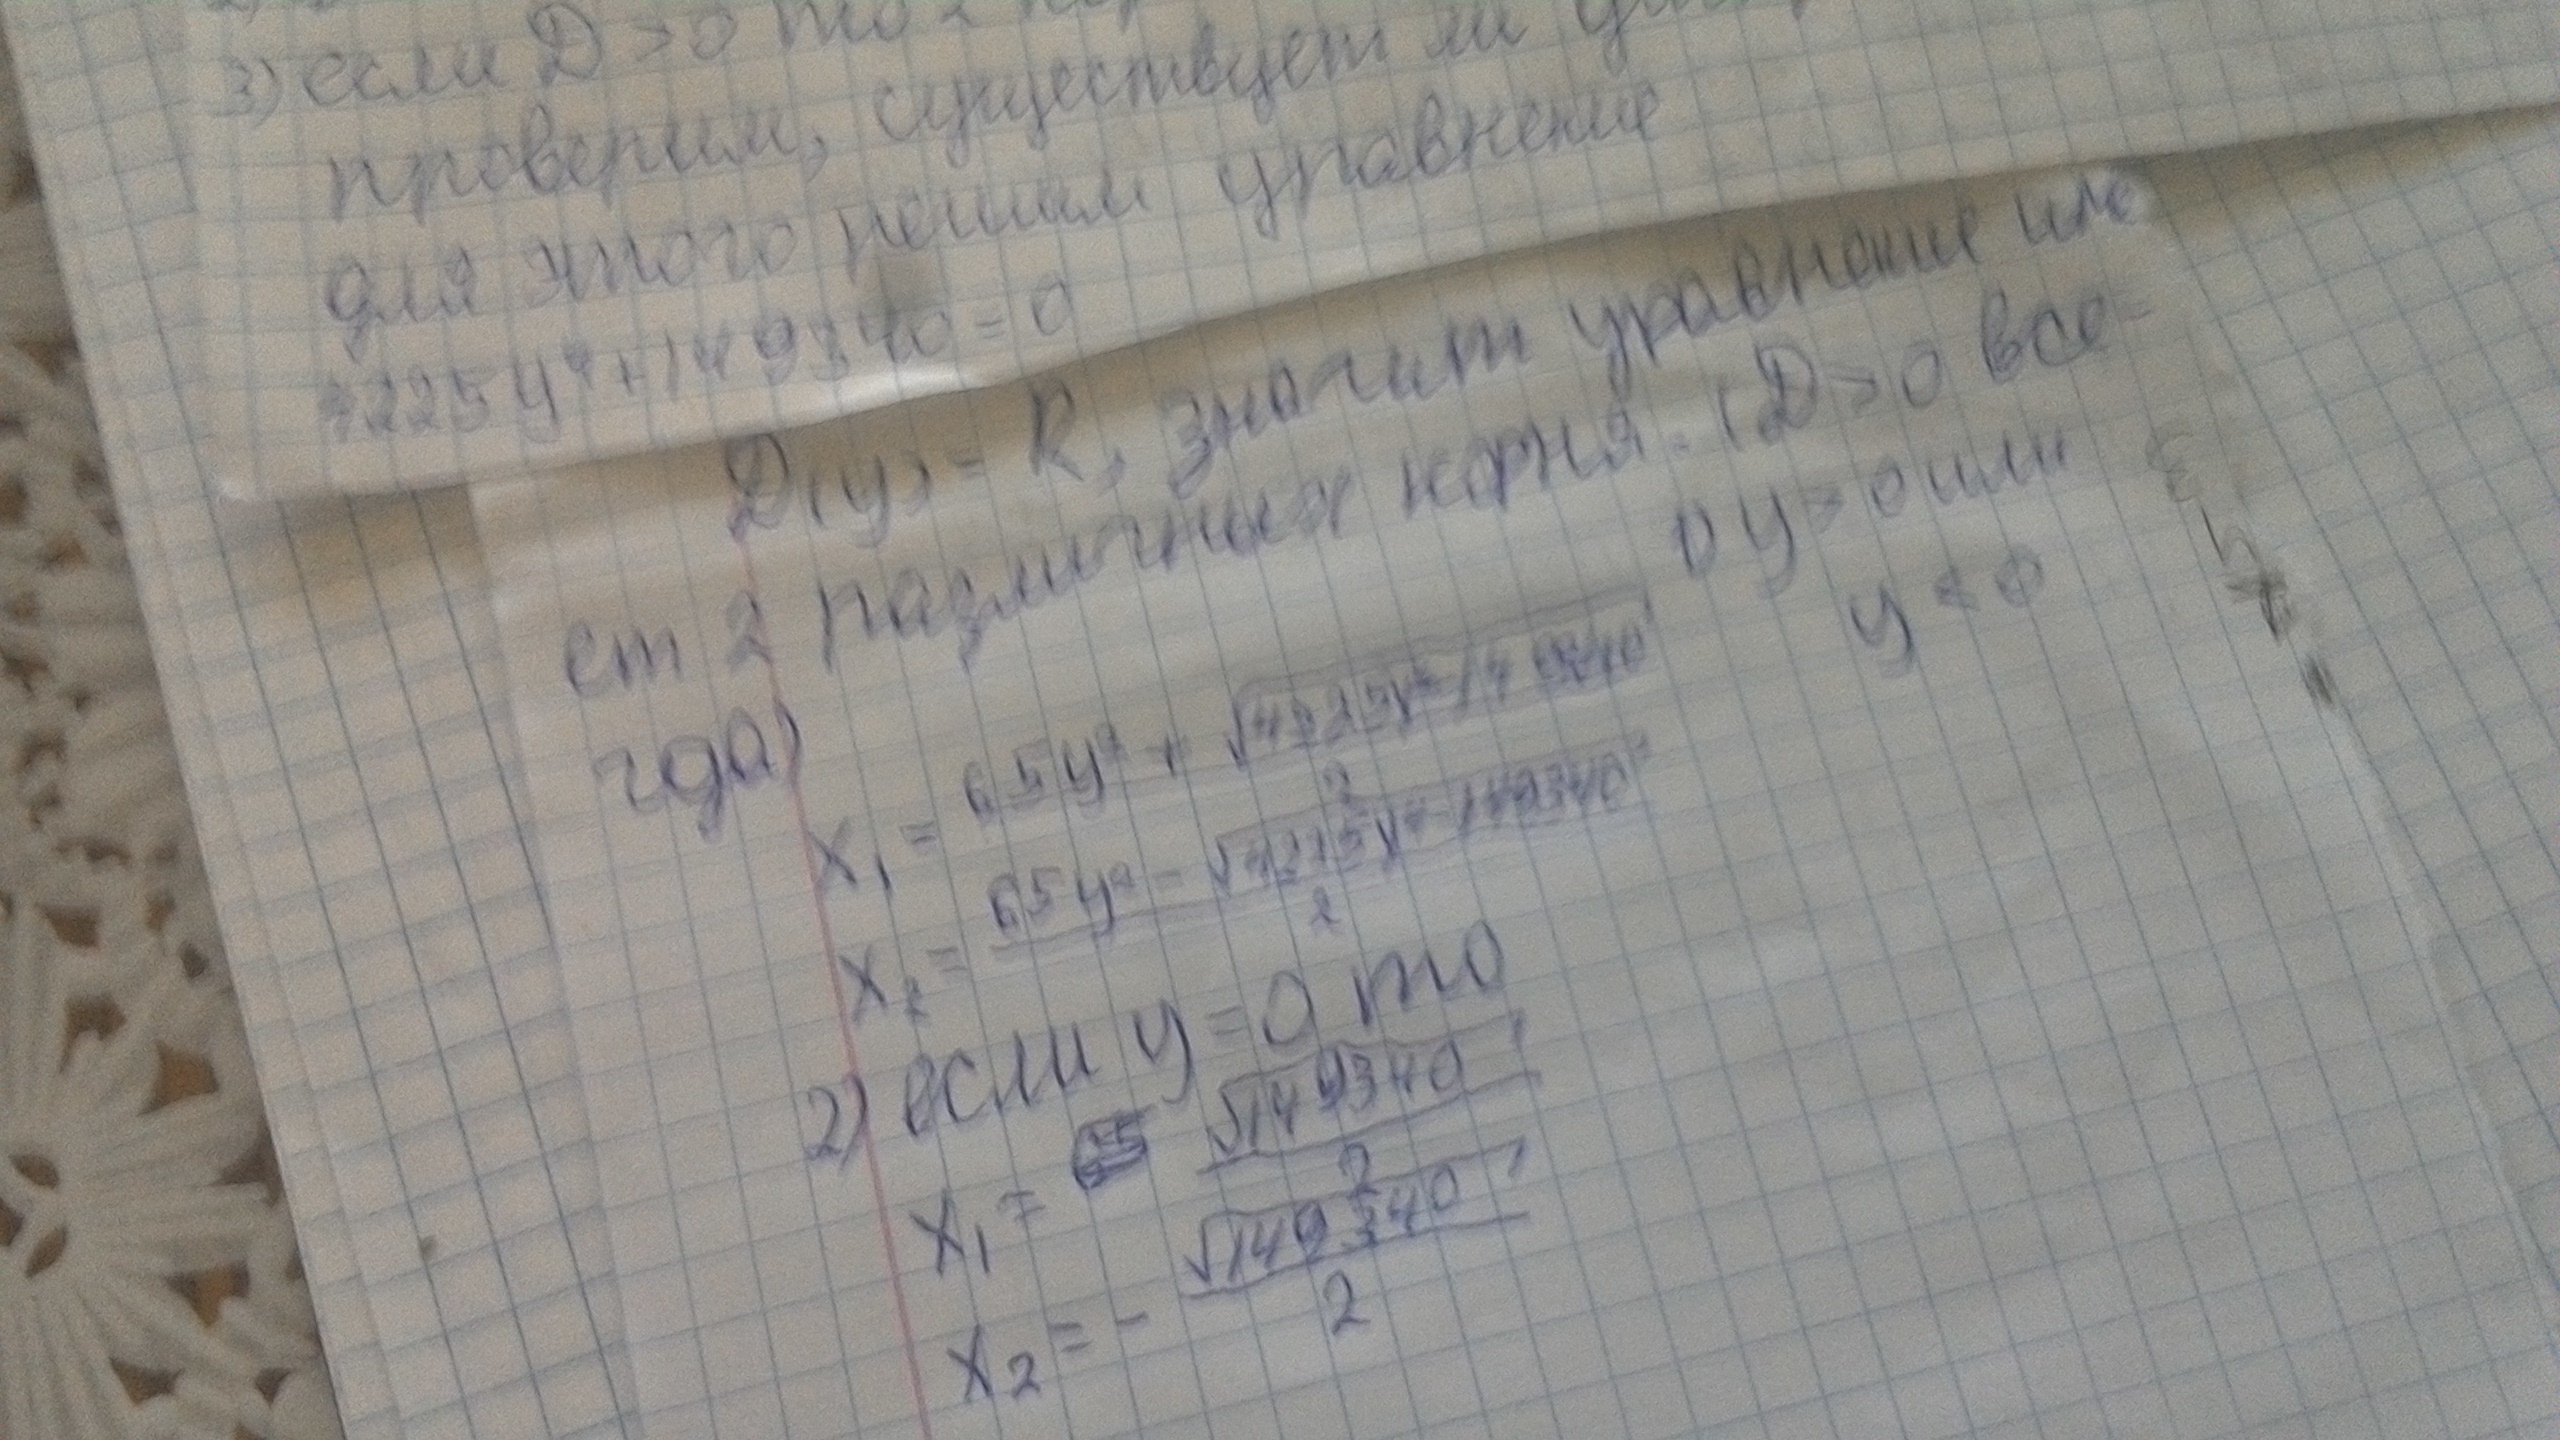 3) если D > 0 то 2
проверим, существует ли
для этого решим уравнение
4225y⁴+149340=0
D(y) = R, значит уравнение име
ет 2 различных корня. (D > 0 все-
гда)
1) y > 0 или
y < 0
x₁ = 65y² + √4225y⁴ 149340 / 2
x₂ = 65y² - √4225y⁴ - 149340 / 2
2) если y = 0 то
x₁ = √149340 / 2
x₂ = - √149340 / 2